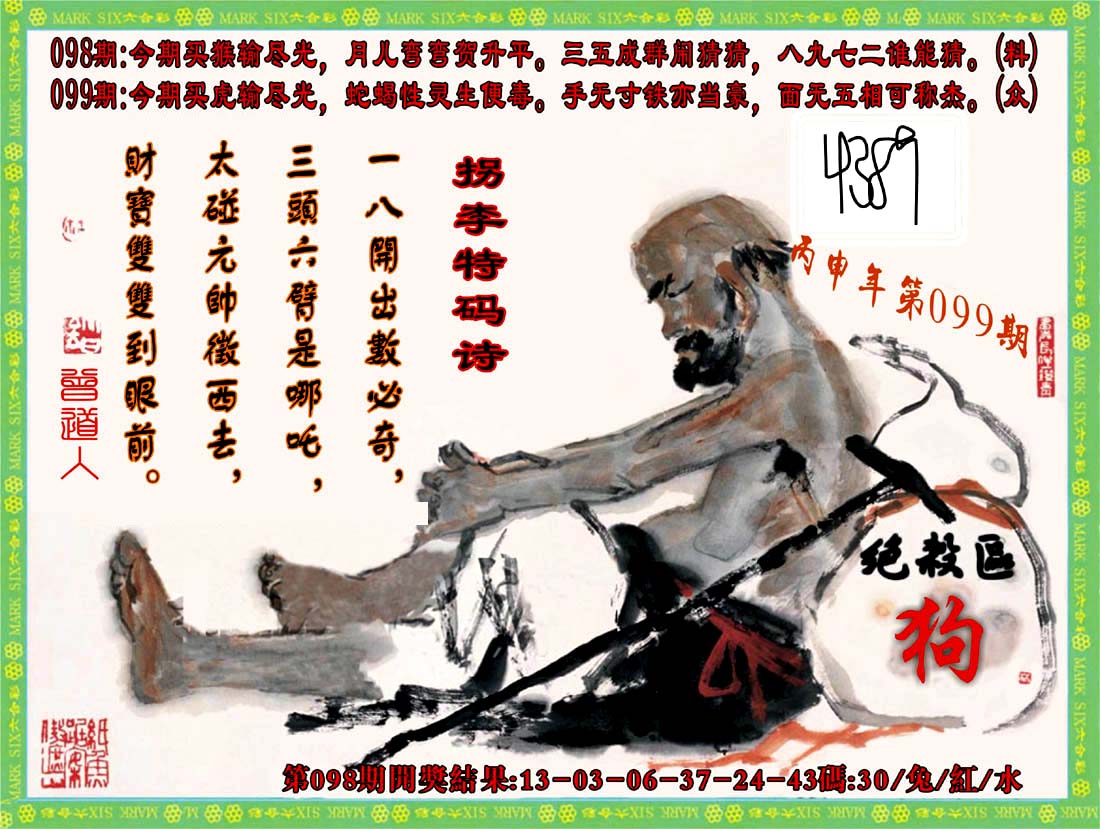 MARK SIX六合彩
098期:今期买猴输尽光，月儿弯弯贺升平。三五成群闹猜猜，八九七二谁能猜。(料)
099期:今期买虎输尽光，蛇蝎性灵生便毒。手无寸铁亦当豪，面无五相可称杰。(众)
4389
丙申年第099期
拐李特码诗
一八開出數必奇，
三頭六臂是哪吒，
太碰元帥徵西去，
財寶雙雙到眼前。
曾道人
绝殺區
狗
第098期開獎結果:13-03-06-37-24-43碼:30/兔/紅/水